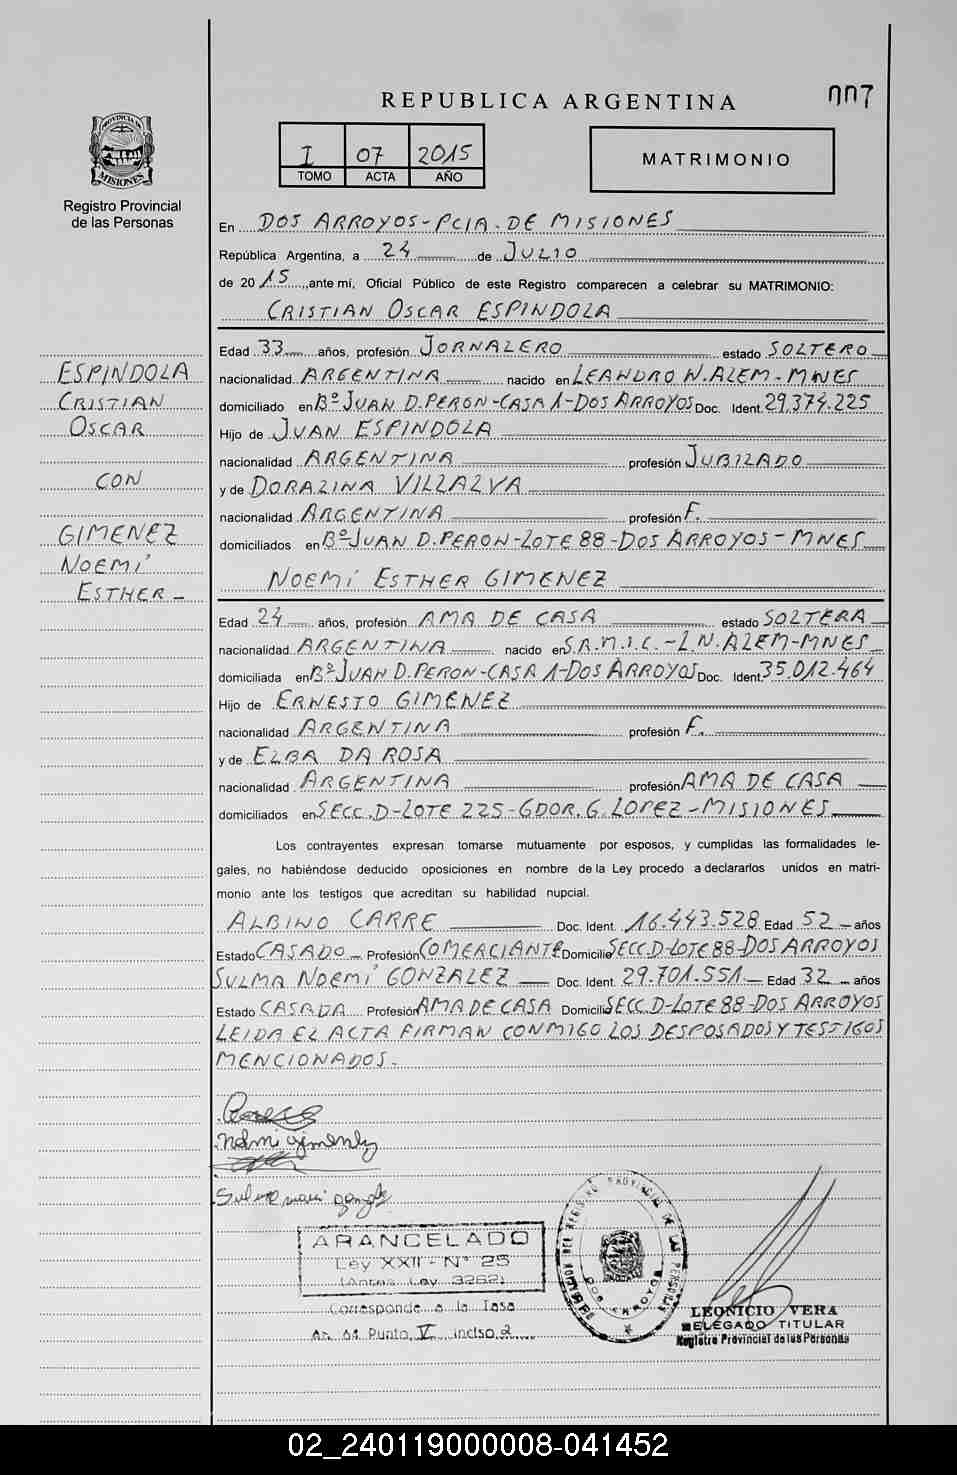 REPUBLICA ARGENTINA
007
PROVINCIA DE
MISIONES
Registro Provincial
de las Personas
I 07 2015
TOMO ACTA AÑO
MATRIMONIO
En DOS ARROYOS-PCIA. DE MISIONES
República Argentina, a 24 de JULIO
de 2015, ante mí, Oficial Público de este Registro comparecen a celebrar su MATRIMONIO:
CRISTIAN OSCAR ESPINDOLA
Edad 33 años, profesión JORNALERO estado SOLTERO
nacionalidad ARGENTINA nacido en LEANDRO N. ALEM-MNES
domiciliado en Bº JUAN D. PERON-CASA 1-DOS ARROYOS Doc. Ident. 29.374.225
Hijo de JUAN ESPINDOLA
nacionalidad ARGENTINA profesión JUBILADO
y de DORALINA VILLALVA
nacionalidad ARGENTINA profesión F.
domiciliados en Bº JUAN D. PERON-LOTE 88-DOS ARROYOS-MNES
ESPINDOLA
CRISTIAN
OSCAR
CON
GIMENEZ
NOEMÍ
ESTHER-
NOEMÍ ESTHER GIMENEZ
Edad 24 años, profesión AMA DE CASA estado SOLTERA
nacionalidad ARGENTINA nacido en S.A.M.I.C.-L.N. ALEM-MNES
domiciliada en Bº JUAN D. PERON-CASA 1-DOS ARROYOS Doc. Ident. 35.012.464
Hijo de ERNESTO GIMENEZ
nacionalidad ARGENTINA profesión F.
y de ELBA DA ROSA
nacionalidad ARGENTINA profesión AMA DE CASA
domiciliados en SECC. D-LOTE 225-GDOR. G. LOPEZ-MISIONES
Los contrayentes expresan tomarse mutuamente por esposos, y cumplidas las formalidades le-
gales, no habiéndose deducido oposiciones en nombre de la Ley procedo a declararlos unidos en matri-
monio ante los testigos que acreditan su habilidad nupcial.
ALBINO CARRE Doc. Ident. 16.443.528 Edad 52 años
Estado CASADO Profesión COMERCIANTE Domicilio SECC. D-LOTE 88-DOS ARROYOS
SULMA NOEMÍ GONZALEZ Doc. Ident. 29.701.551 Edad 32 años
Estado CASADA Profesión AMA DE CASA Domicilio SECC. D-LOTE 88-DOS ARROYOS
LEIDA EL ACTA FIRMAN CONMIGO LOS DESPOSADOS Y TESTIGOS
MENCIONADOS.
ARANCELADO
Ley XXII - Nº 25
(Antes Ley 3262)
Corresponde a la Tasa
Ar. 04 Punto V inciso 2
REGISTRO PROVINCIAL DE LAS PERSONAS
DOS ARROYOS
LEONICIO VERA
DELEGADO TITULAR
Registro Provincial de las Personas
02_240119000008-041452